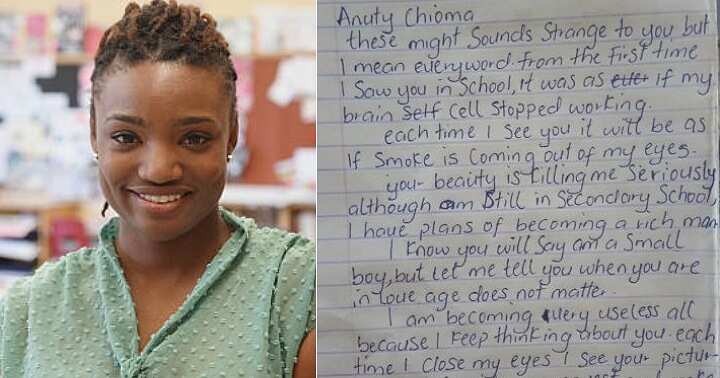 Anuty Chioma
these might Sounds Strange to you but
I mean everyword from the First time
I Saw you in School, it was as if my
brain Self Cell Stopped working.
each time I See you it will be as
If Smoke is Coming out of my eyes.
your beauty is Killing me Seriously
although am Still in Secondary School,
I have plans of becoming a rich man
I Know you will Say am a Small
boy, but let me tell you when you are
in love age does not matter.
I am becoming very useless all
because I Keep thinking about you. each
time I Close my eyes I See your pictur